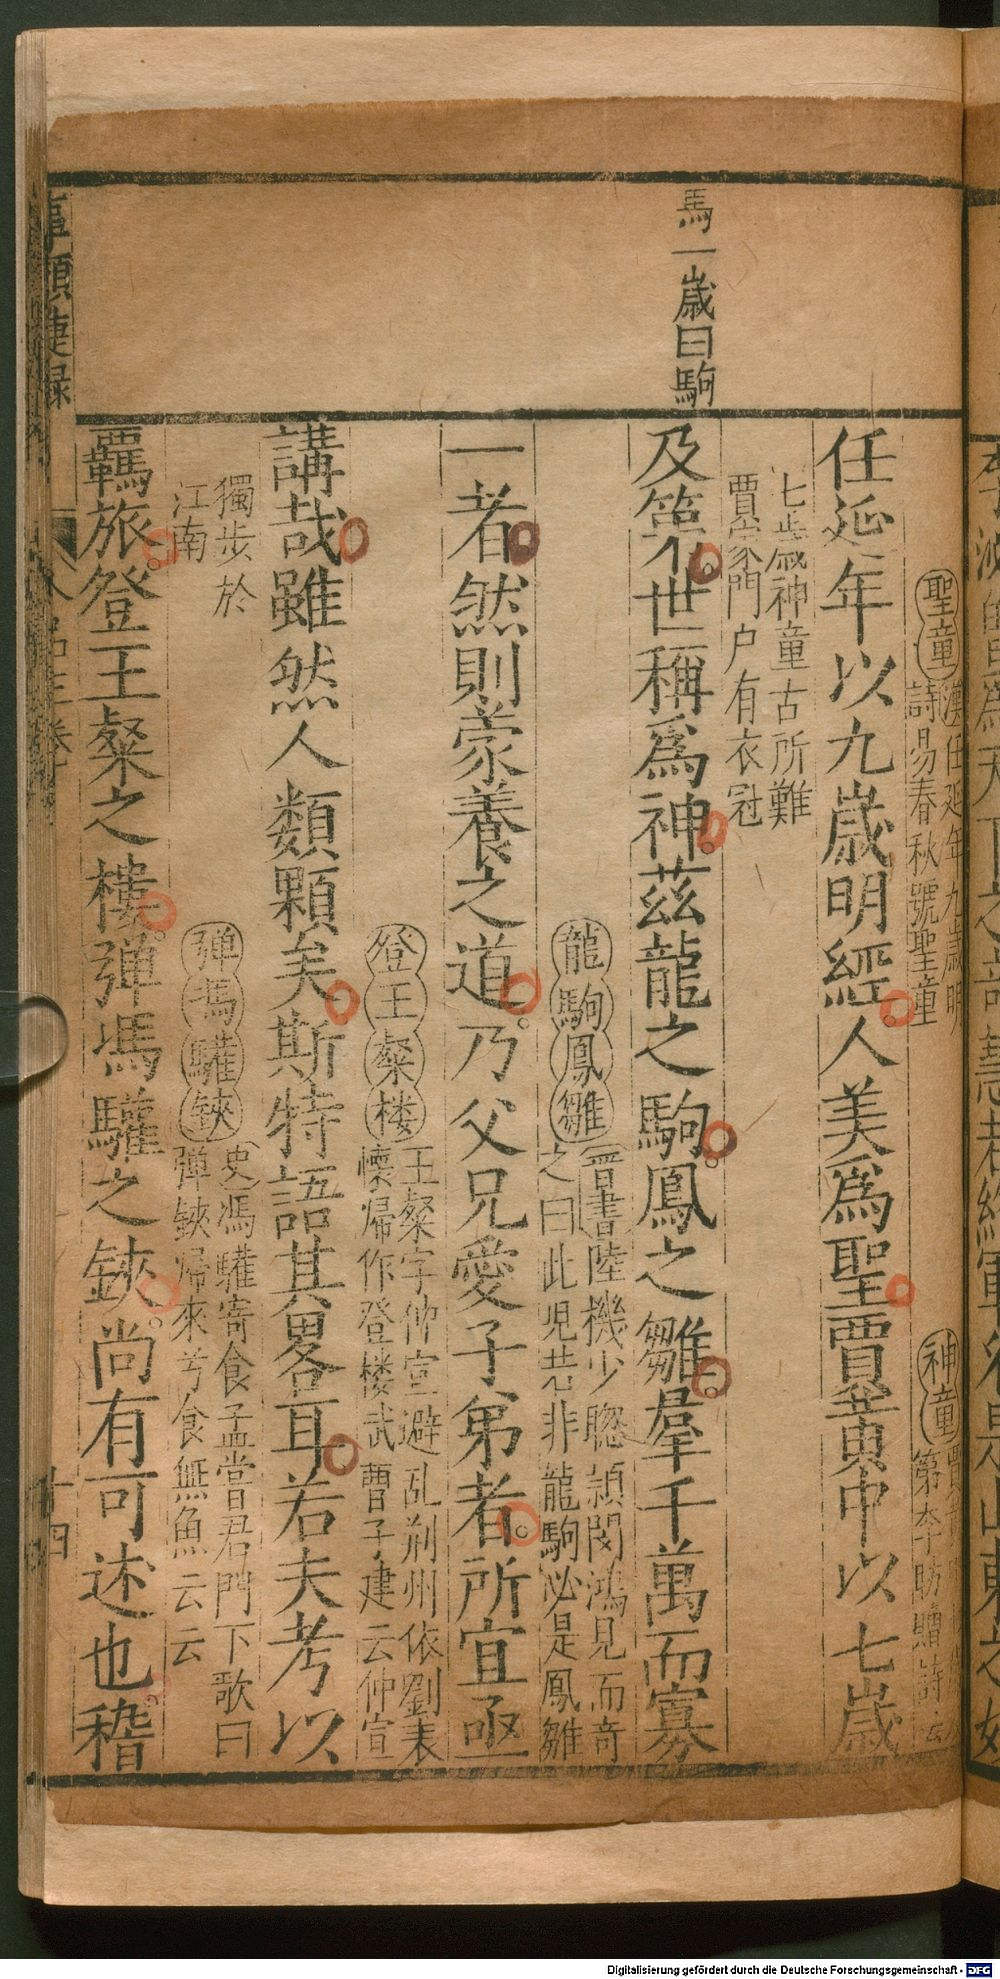 馬一歲曰駒
聖童
漢任延年九歲明
詩易春秋號聖童
神童
第李昉贈詩云
任延年以九歲明經人美爲聖賈黃中以七歲
七歲神童古所難
賈家門户有衣冠
及第世稱爲神茲龍之駒鳳之雛羣千萬而寡
龍駒鳳雛
晉書陸機少聰頴閔鴻見而竒
之曰此児若非龍駒必是鳳雛
一者然則蒙養之道乃父兄愛子弟者所宜亟
登王粲楼
王粲字仲宣避乱荊州依劉表
懷帰作登楼武曹子建云仲宣
獨步於
江南
講哉雖然人類顆矣斯特語其畧耳若夫考以
弹馮驩鋏
史馮驩寄食孟嘗君門下歌曰
弹鋏歸來兮食無魚云云
羈旅登王粲之樓弹馮驩之鋏尚有可述也稽
事類捷録
十四
Digitalisierung gefördert durch die Deutsche Forschungsgemeinschaft - DFG